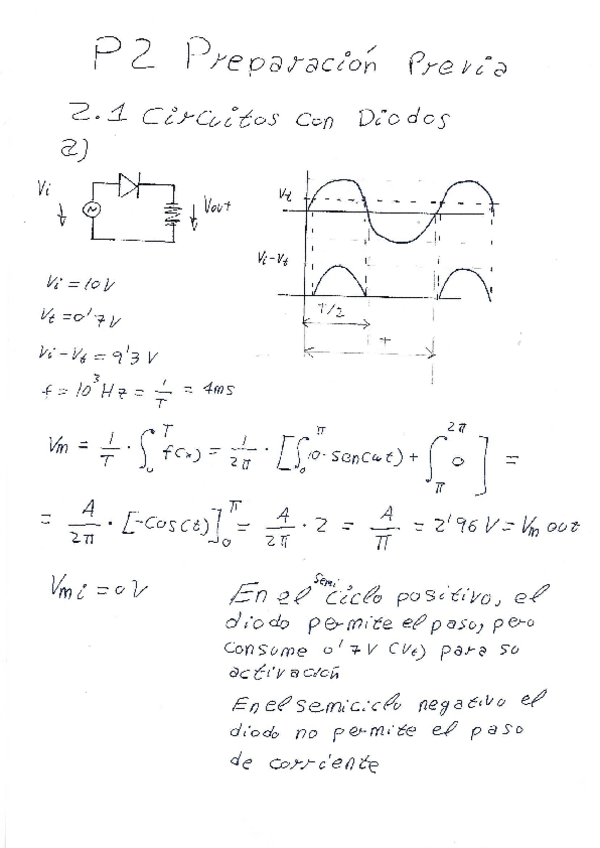 P2 Preparación Previa
2.1 Circuitos con Diodos
a)
Vi
Vout
Vt
Vi-Vt
T/2
T
Vi = 10V
Vt = 0'7V
Vi-Vt = 9'3V
f = 10³ Hz = 1/T = 4ms
Vm = 1/T · ∫₀ᵀ f(x) = 1/2π · [∫₀^π 10·sen(wt) + ∫_π^2π 0] =
= A/2π · [-cos(t)]₀^π = A/2π · 2 = A/π = 2'96 V = Vm out
Vmi = 0V
En el semiciclo positivo, el
diodo permite el paso, pero
consume 0'7V (Vt) para su
activación
En el semiciclo negativo el
diodo no permite el paso
de corriente